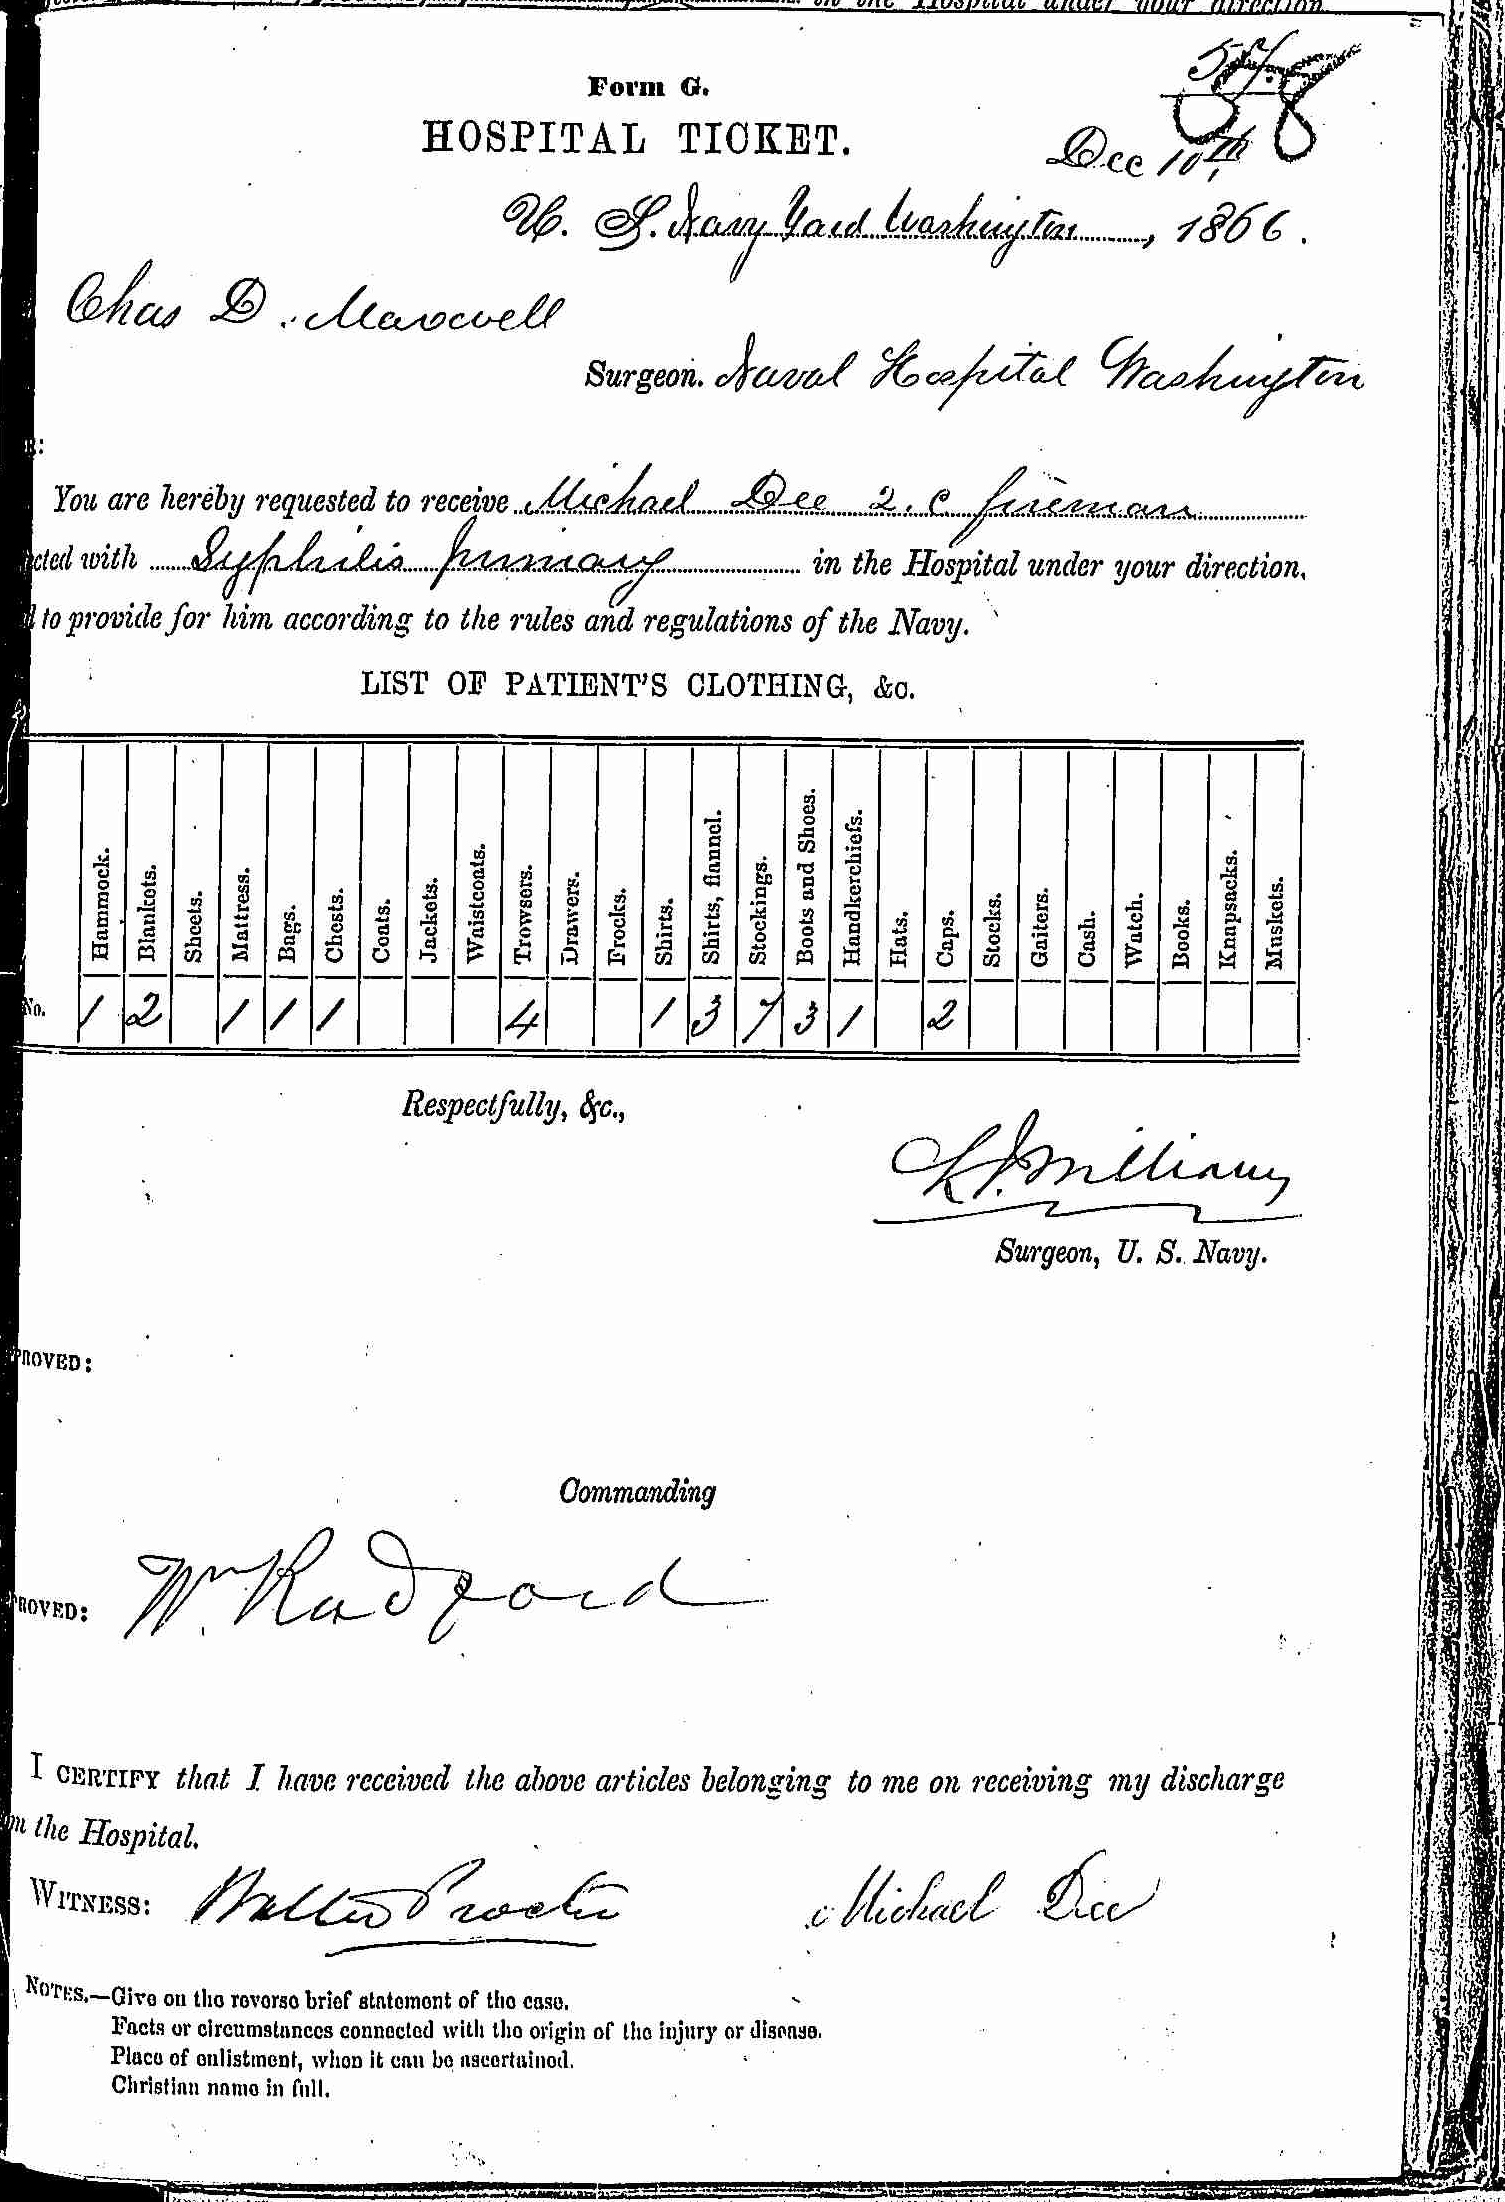 in the Hospital under your direction
Form G.
57.
58
HOSPITAL TICKET.
Dec 10th,
U. S. Navy Yard Washington, 1866.
Chas D. Maxwell
Surgeon. Naval Hospital Washington
You are hereby requested to receive Michael Dee 2. C fireman
cted with Syphilis primary in the Hospital under your direction,
to provide for him according to the rules and regulations of the Navy.
LIST OF PATIENT'S CLOTHING, &c.
Hammock. Blankets. Sheets. Mattress. Bags. Chests. Coats. Jackets. Waistcoats. Trowsers. Drawers. Frocks. Shirts. Shirts, flannel. Stockings. Boots and Shoes. Handkerchiefs. Hats. Caps. Stocks. Gaiters. Cash. Watch. Books. Knapsacks. Muskets.
No. 1 2 1 1 1 4 1 3 7 3 1 2
Respectfully, &c.,
Williams
Surgeon, U. S. Navy.
PROVED:
Commanding
PROVED: Wm. Radford
I CERTIFY that I have received the above articles belonging to me on receiving my discharge
m the Hospital.
WITNESS: Walter Proctor Michael Dee
NOTES.—Give on the reverse brief statement of the case.
Facts or circumstances connected with the origin of the injury or disease.
Place of enlistment, when it can be ascertained.
Christian name in full.